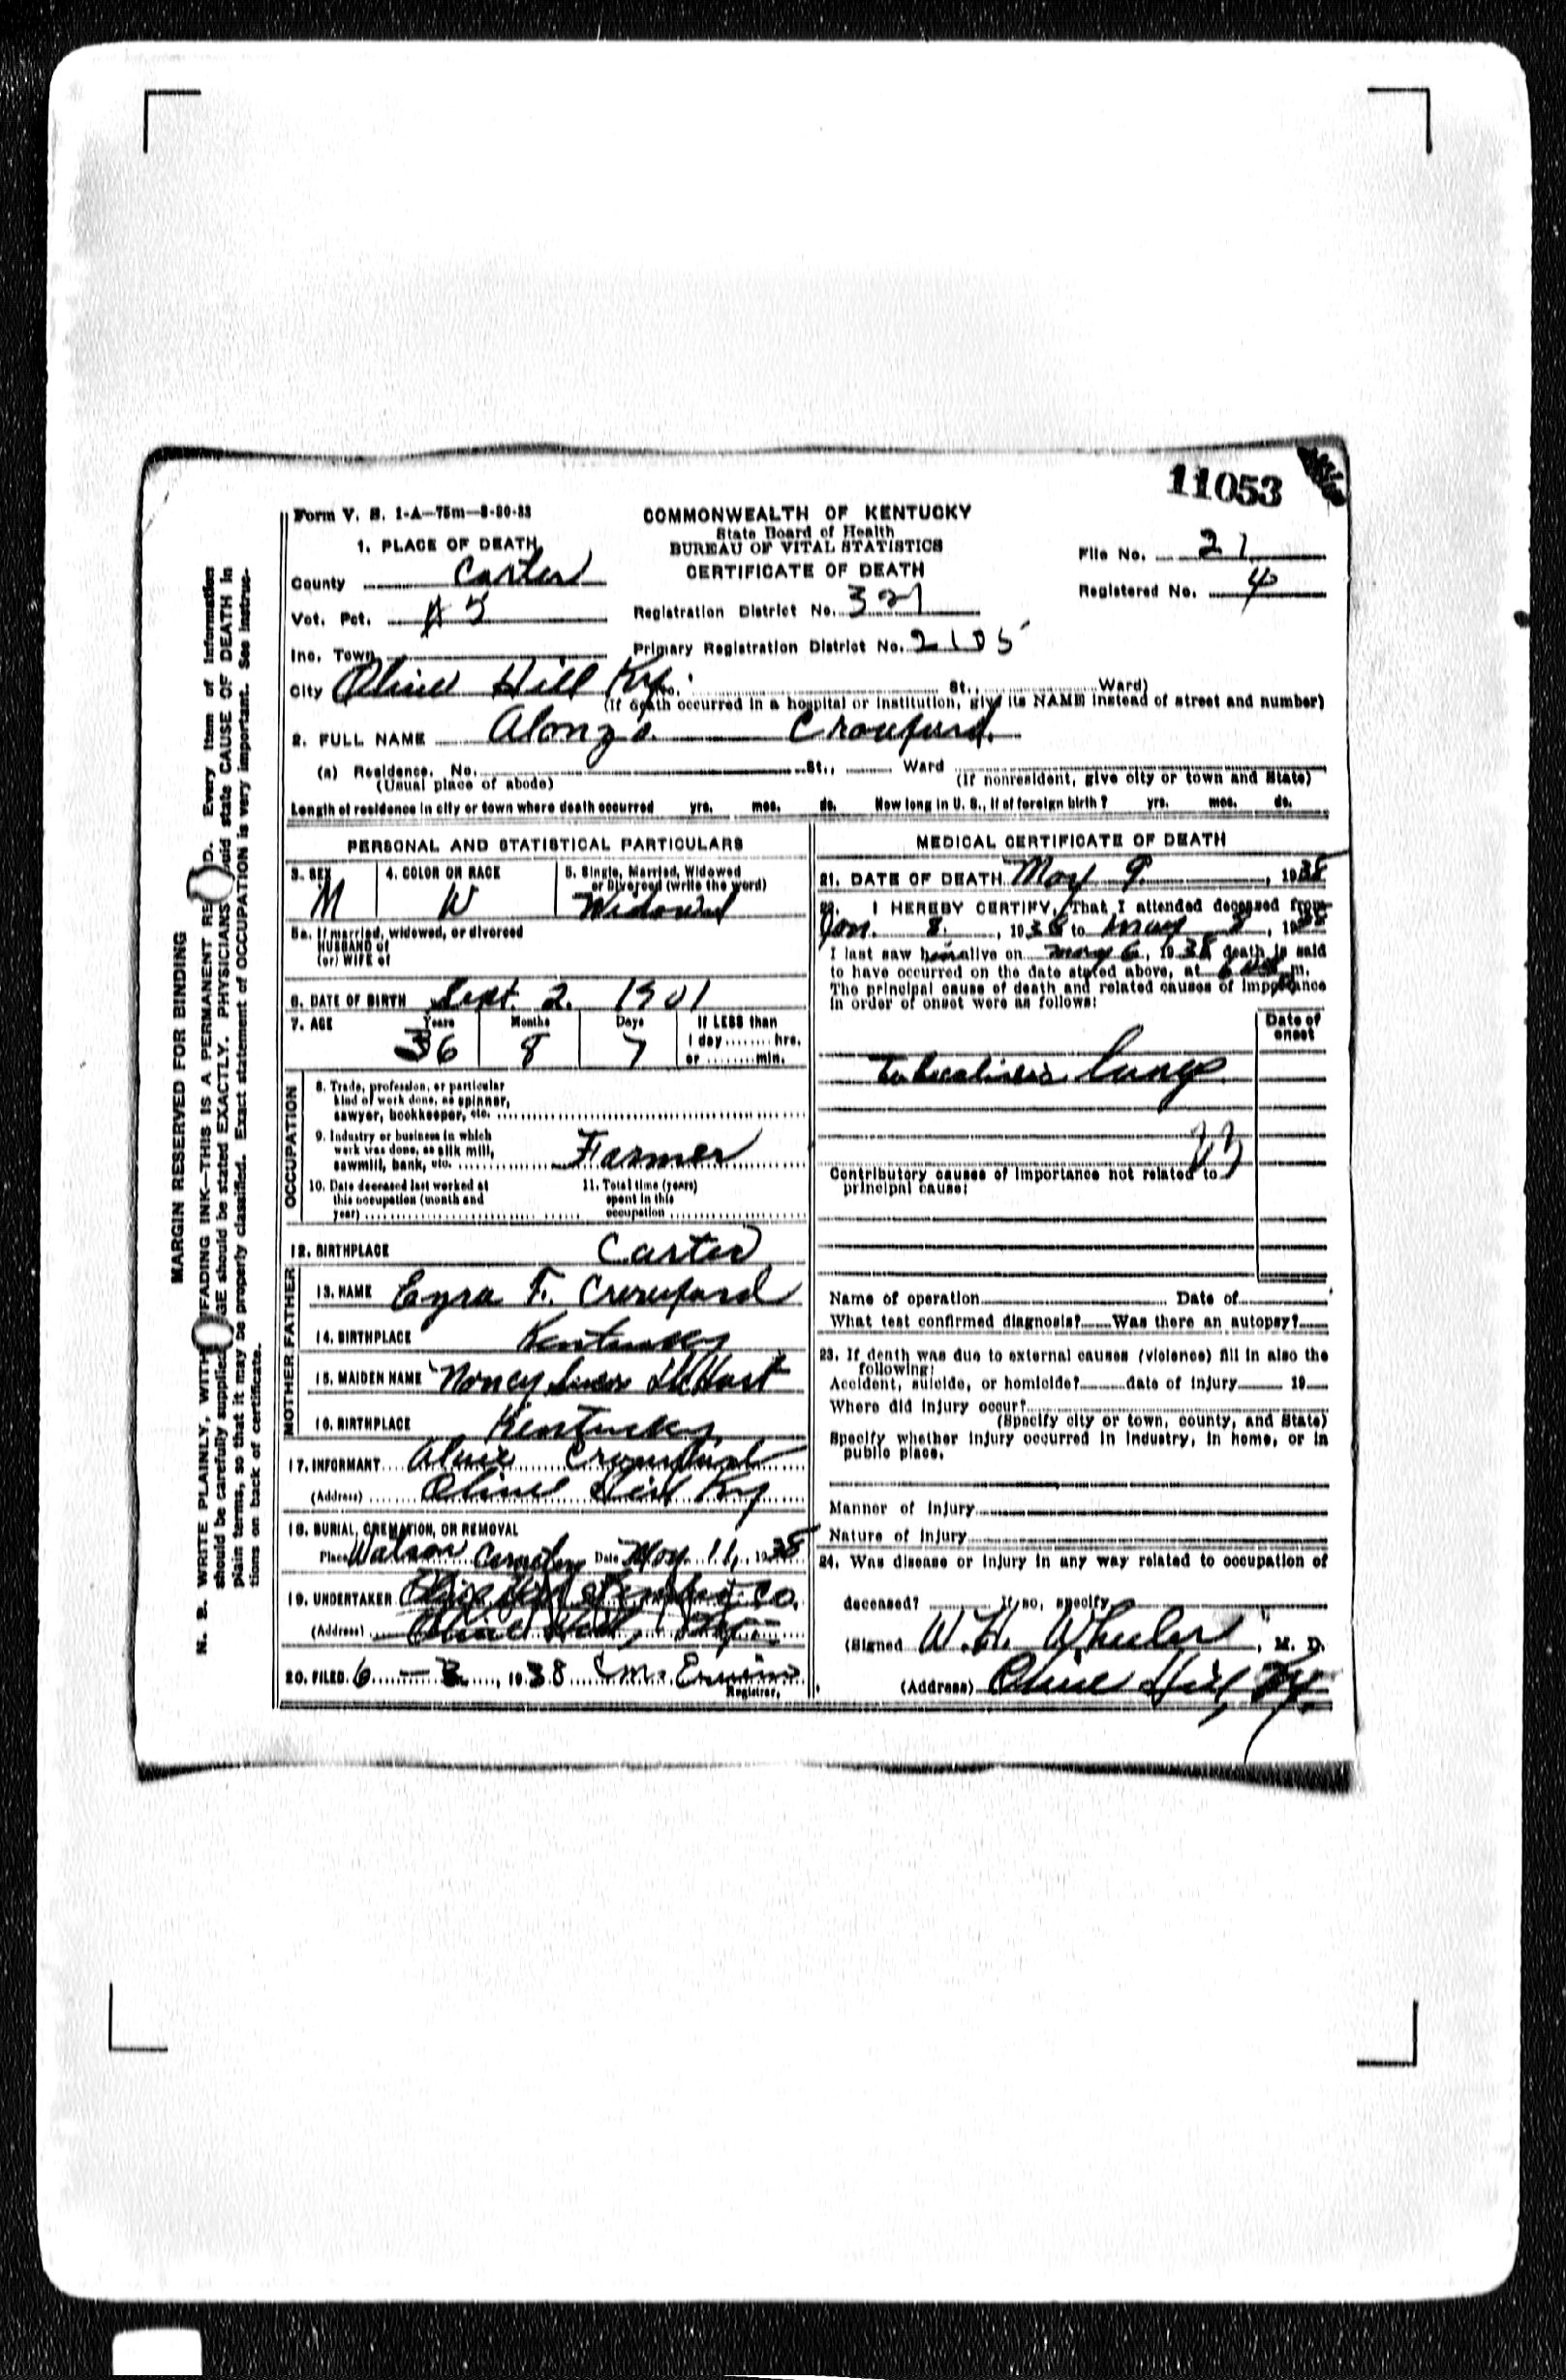 11053
Form V. S. 1-A—75m—8-30-33
COMMONWEALTH OF KENTUCKY
State Board of Health
BUREAU OF VITAL STATISTICS
CERTIFICATE OF DEATH
File No. 21
Registered No. 4
1. PLACE OF DEATH
County Carter
Vot. Pct. # 5
Registration District No. 321
Inc. Town
Primary Registration District No. 2105
City Olive Hill Ky. No. St., Ward)
(If death occurred in a hospital or institution, give its NAME instead of street and number)
2. FULL NAME Alonzo Crawford.
(a) Residence. No. St., Ward
(Usual place of abode) (If nonresident, give city or town and State)
Length of residence in city or town where death occurred yrs. mos. ds. How long in U. S., if of foreign birth? yrs. mos. ds.
PERSONAL AND STATISTICAL PARTICULARS
3. SEX 4. COLOR OR RACE 5. Single, Married, Widowed
or Divorced (write the word)
M W Widowed
5a. If married, widowed, or divorced
HUSBAND of
(or) WIFE of
6. DATE OF BIRTH Sept. 2. 1901
7. AGE Years Months Days If LESS than
36 8 7 1 day........hrs.
or........min.
OCCUPATION
8. Trade, profession, or particular
kind of work done, as spinner,
sawyer, bookkeeper, etc.
9. Industry or business in which
work was done, as silk mill,
sawmill, bank, etc. Farmer
10. Date deceased last worked at
this occupation (month and
year)
11. Total time (years)
spent in this
occupation
12. BIRTHPLACE Carter
FATHER
13. NAME Ezra F. Crawford
14. BIRTHPLACE Kentucky
MOTHER
15. MAIDEN NAME Nancy
16. BIRTHPLACE Kentucky
17. INFORMANT Crawford
(Address) Olive Hill Ky
18. BURIAL, CREMATION, OR REMOVAL
Place Watson Cemetery Date May 11, 1938
19. UNDERTAKER Co.
(Address) Olive Hill, Ky
20. FILED 6 — 2, 1938 Erwin
Registrar.
MEDICAL CERTIFICATE OF DEATH
21. DATE OF DEATH May 9, 1938
22. I HEREBY CERTIFY, That I attended deceased from
Jan. 8, 1938 to May 8, 1938
I last saw him alive on May 6, 1938, death is said
to have occurred on the date stated above, at m.
The principal cause of death and related causes of importance
in order of onset were as follows:
Date of
onset
Lungs
23
Contributory causes of importance not related to
principal cause:
Name of operation Date of
What test confirmed diagnosis? Was there an autopsy?
23. If death was due to external causes (violence) fill in also the
following:
Accident, suicide, or homicide? date of injury 19
Where did injury occur?
(Specify city or town, county, and State)
Specify whether injury occurred in industry, in home, or in
public place.
Manner of Injury
Nature of Injury
24. Was disease or injury in any way related to occupation of
deceased? If so, specify
(Signed W. H. Wheeler, M. D.
(Address) Olive Hill, Ky.
MARGIN RESERVED FOR BINDING
N. B. WRITE PLAINLY, WITH FADING INK—THIS IS A PERMANENT RE D. Every item of information
should be carefully supplied GE should be stated EXACTLY. PHYSICIANS ould state CAUSE OF DEATH in
plain terms, so that it may be properly classified. Exact statement of OCCUPATION is very important. See instruc-
tions on back of certificate.